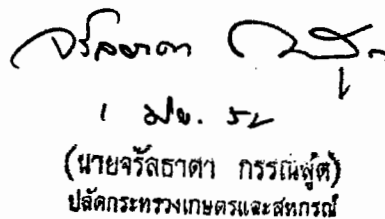 จรัลธาดา
(นายจรัลธาดา กรรณสูต)
ปลัดกระทรวงเกษตรและสหกรณ์